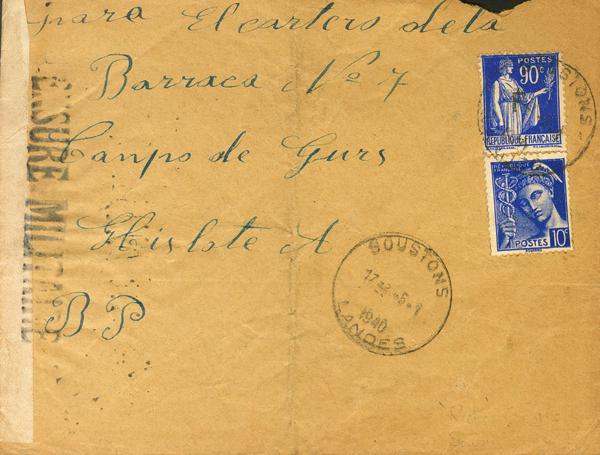 para El cartero dela
Barraca Nº 7
Canpo de Gurs
Hislote A
B P
CENSURE MILITAIRE
POSTES
90c
REPUBLIQUE FRANÇAISE
REPUBLIQUE
FRANÇAISE
POSTES 10c
SOUSTONS
1940
LANDES